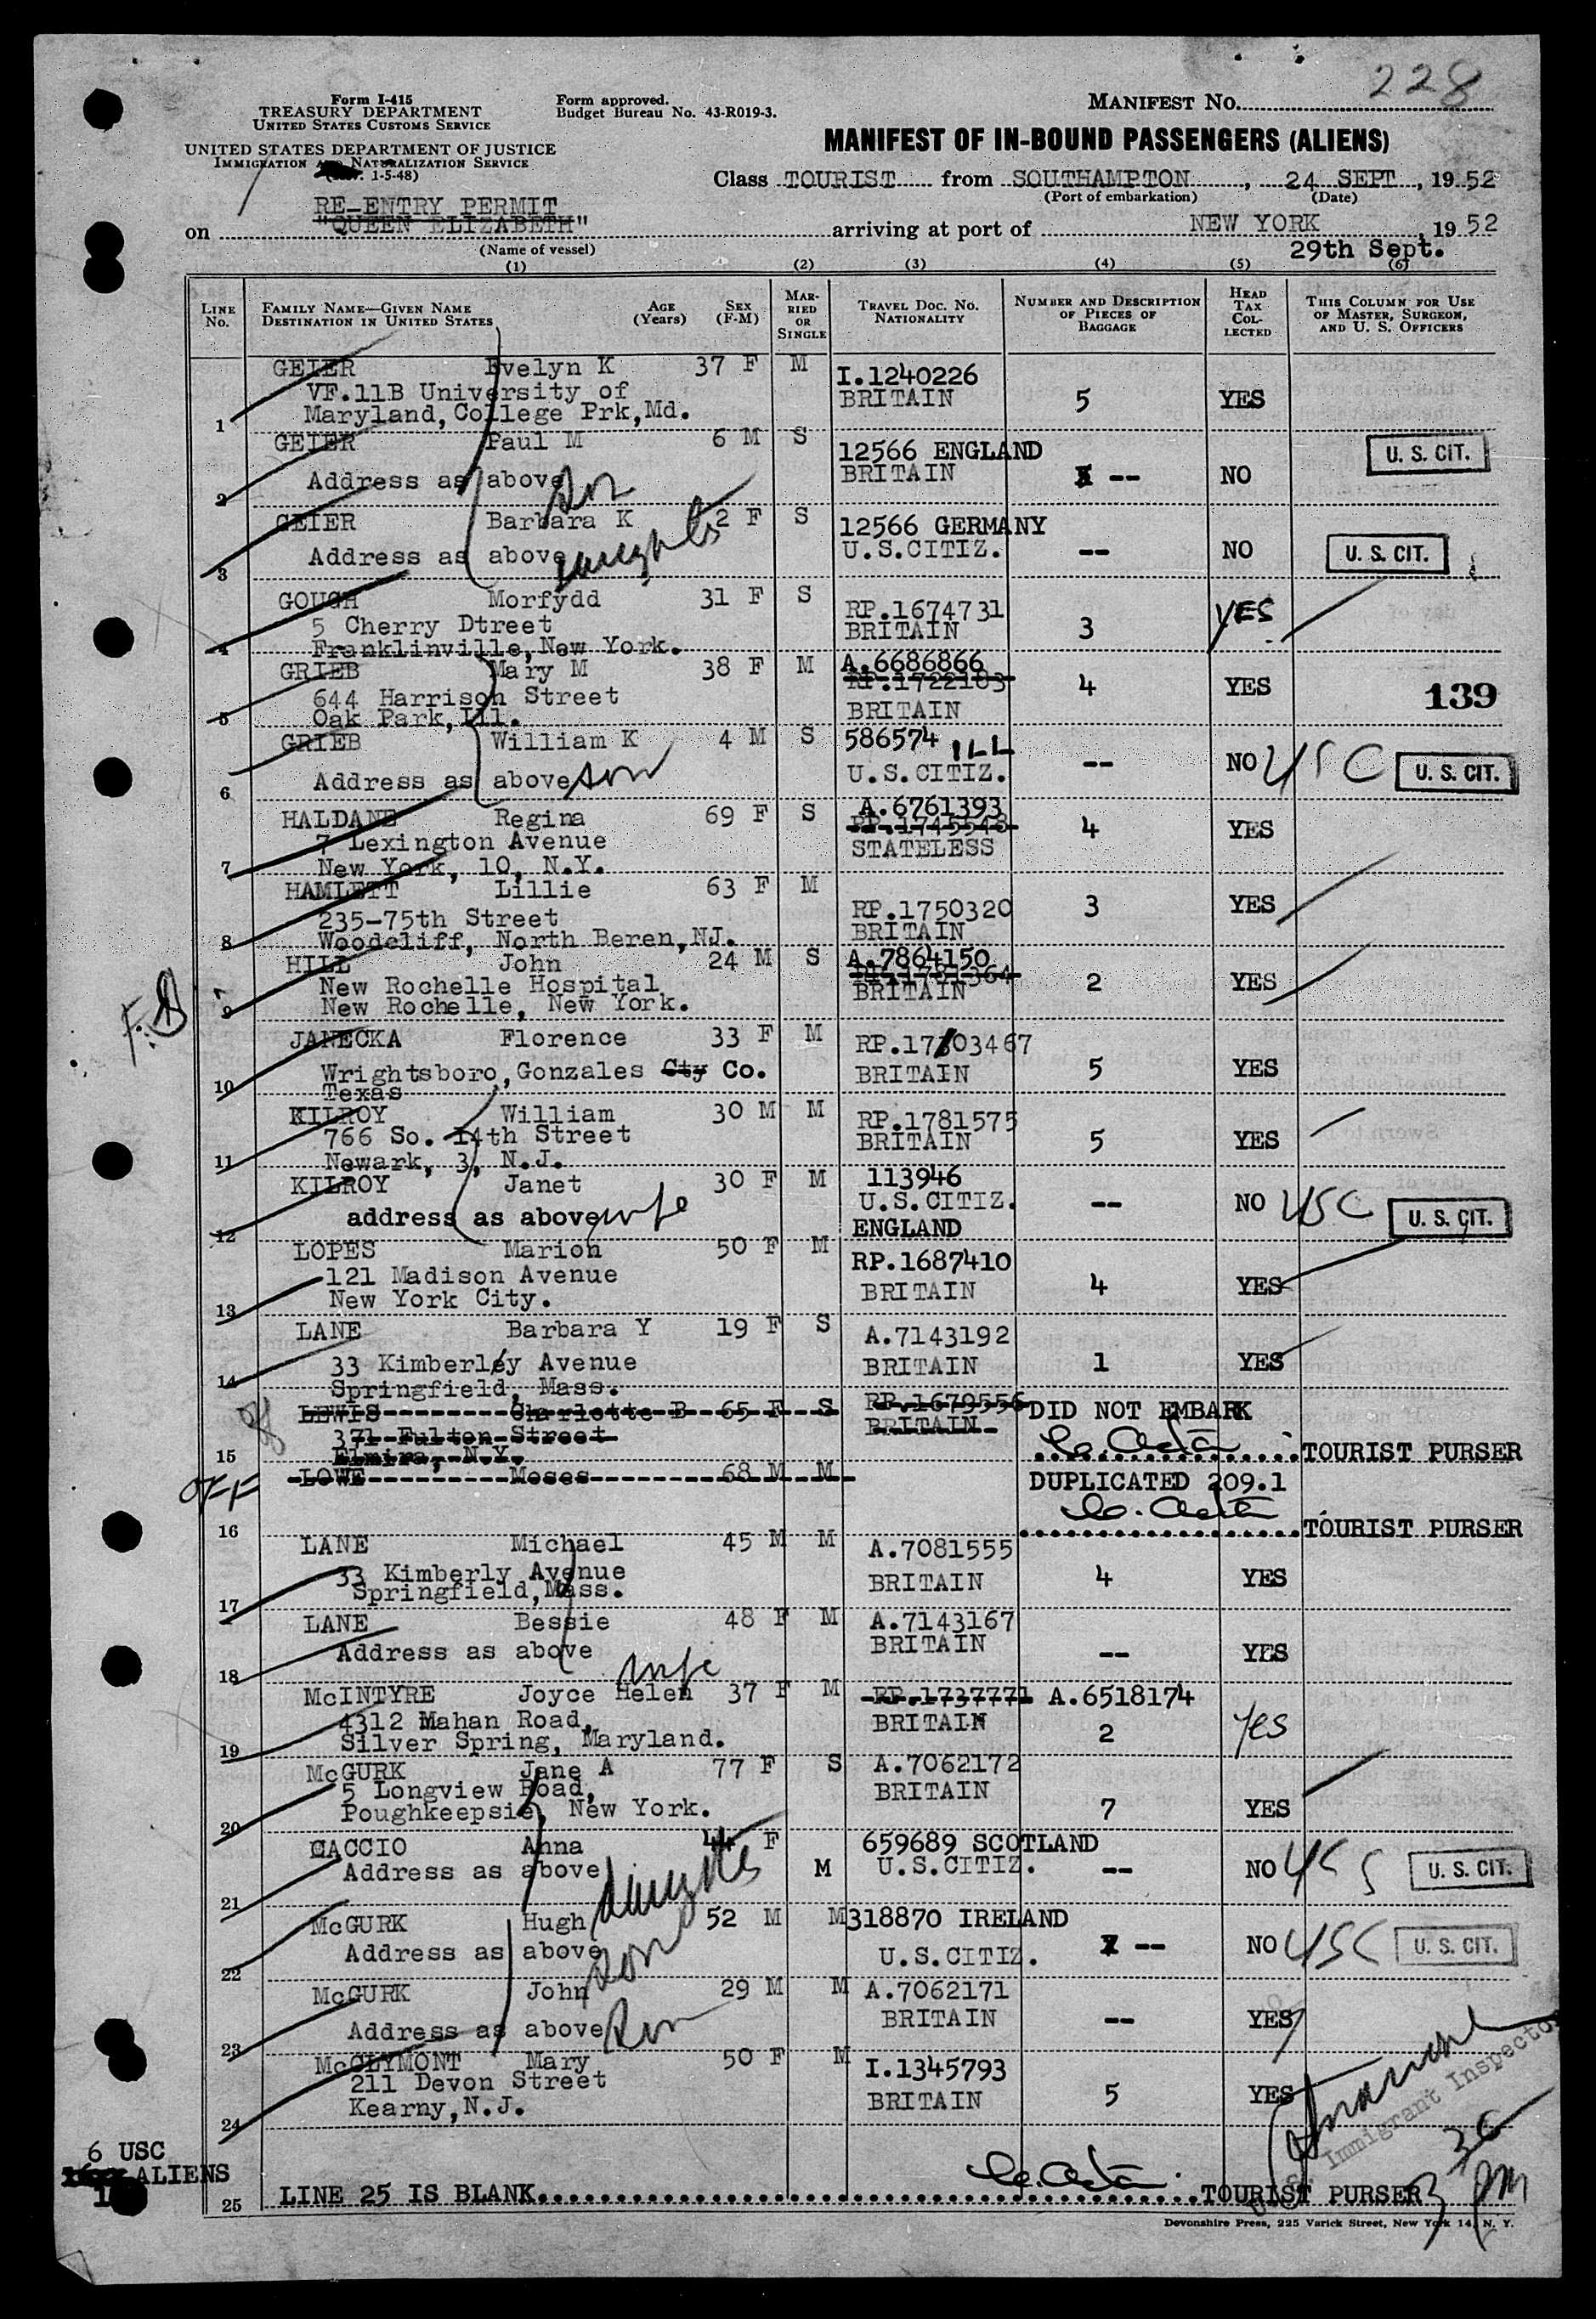 228
Form I-415
TREASURY DEPARTMENT
UNITED STATES CUSTOMS SERVICE
UNITED STATES DEPARTMENT OF JUSTICE
IMMIGRATION AND NATURALIZATION SERVICE
1-5-48)
Form approved.
Budget Bureau No. 43-R019-3.
MANIFEST No.
MANIFEST OF IN-BOUND PASSENGERS (ALIENS)
Class TOURIST from SOUTHAMPTON, 24 SEPT, 1952
(Port of embarkation) (Date)
RE-ENTRY PERMIT
on "QUEEN ELIZABETH" arriving at port of NEW YORK, 1952
(Name of vessel) 29th Sept.
(1) (2) (3) (4) (5) (6)
LINE No. FAMILY NAME—GIVEN NAME DESTINATION IN UNITED STATES AGE (Years) SEX (F-M) MARRIED OR SINGLE TRAVEL DOC. NO. NATIONALITY NUMBER AND DESCRIPTION OF PIECES OF BAGGAGE HEAD TAX COLLECTED THIS COLUMN FOR USE OF MASTER, SURGEON, AND U. S. OFFICERS
GEIER Evelyn K 37 F M I.1240226
VF.11B University of BRITAIN 5 YES
1 Maryland, College Prk,Md.
GEIER Paul M 6 M S 12566 ENGLAND U. S. CIT.
2 Address as above son BRITAIN -- NO
GEIER Barbara K 2 F S 12566 GERMANY
3 Address as above daughter U.S.CITIZ. -- NO U. S. CIT.
GOUGH Morfydd 31 F S RP.1674731 YES
5 Cherry Dtreet BRITAIN 3
4 Franklinville, New York.
GRIEB Mary M 38 F M A.6686866
644 Harrison Street RP.1722103 4 YES 139
5 Oak Park, Ill. BRITAIN
GRIEB William K 4 M S 586574 ILL
6 Address as above son U.S.CITIZ. -- NO USC U. S. CIT.
HALDANE Regina 69 F S A.6761393
7 Lexington Avenue RP.1745548 4 YES
7 New York, 10, N.Y. STATELESS
HAMLETT Lillie 63 F M
235-75th Street RP.1750320 3 YES
8 Woodcliff, North Beren,NJ. BRITAIN
HILL John 24 M S A.7864150
New Rochelle Hospital 2 YES
9 New Rochelle, New York. BRITAIN
JANECKA Florence 33 F M RP.1703467
10 Wrightsboro, Gonzales Cty Co. BRITAIN 5 YES
Texas
KILROY William 30 M M RP.1781575
766 So. 14th Street BRITAIN 5 YES
11 Newark, 3, N.J.
KILROY Janet 30 F M 113946
U.S.CITIZ. -- NO USC U. S. CIT.
12 address as above wife ENGLAND
LOPES Marion 50 F M RP.1687410
121 Madison Avenue BRITAIN 4 YES
13 New York City.
LANE Barbara Y 19 F S A.7143192
33 Kimberley Avenue BRITAIN 1 YES
14 Springfield, Mass.
LEWIS Charlotte B 65 F S RP.1679556 DID NOT EMBARK
371 Fulton Street BRITAIN
15 Elmira, N.Y. TOURIST PURSER
OFF LOWE Moses 68 M M DUPLICATED 209.1
16 TOURIST PURSER
LANE Michael 45 M M A.7081555
33 Kimberly Avenue BRITAIN 4 YES
17 Springfield, Mass.
LANE Bessie 48 F M A.7143167
18 Address as above wife BRITAIN -- YES
McINTYRE Joyce Helen 37 F M RP.1737771 A.6518174
4312 Mahan Road, BRITAIN 2 Yes
19 Silver Spring, Maryland.
McGURK Jane A 77 F S A.7062172
5 Longview Road, BRITAIN
20 Poughkeepsie, New York. 7 YES
CACCIO Anna 44 F 659689 SCOTLAND
21 Address as above daughter M U.S.CITIZ. -- NO U. S. CIT.
McGURK Hugh 52 M M 318870 IRELAND
22 Address as above son U.S.CITIZ. -- NO USC U. S. CIT.
McGURK John 29 M M A.7062171
23 Address as above Son BRITAIN -- YES
McCLYMONT Mary 50 F M I.1345793
211 Devon Street BRITAIN 5 YES
24 Kearny,N.J.
Immigrant Inspector
6 USC
ALIENS
25 LINE 25 IS BLANK TOURIST PURSER
3 36 PM
Devonshire Press, 225 Varick Street, New York 14, N. Y.